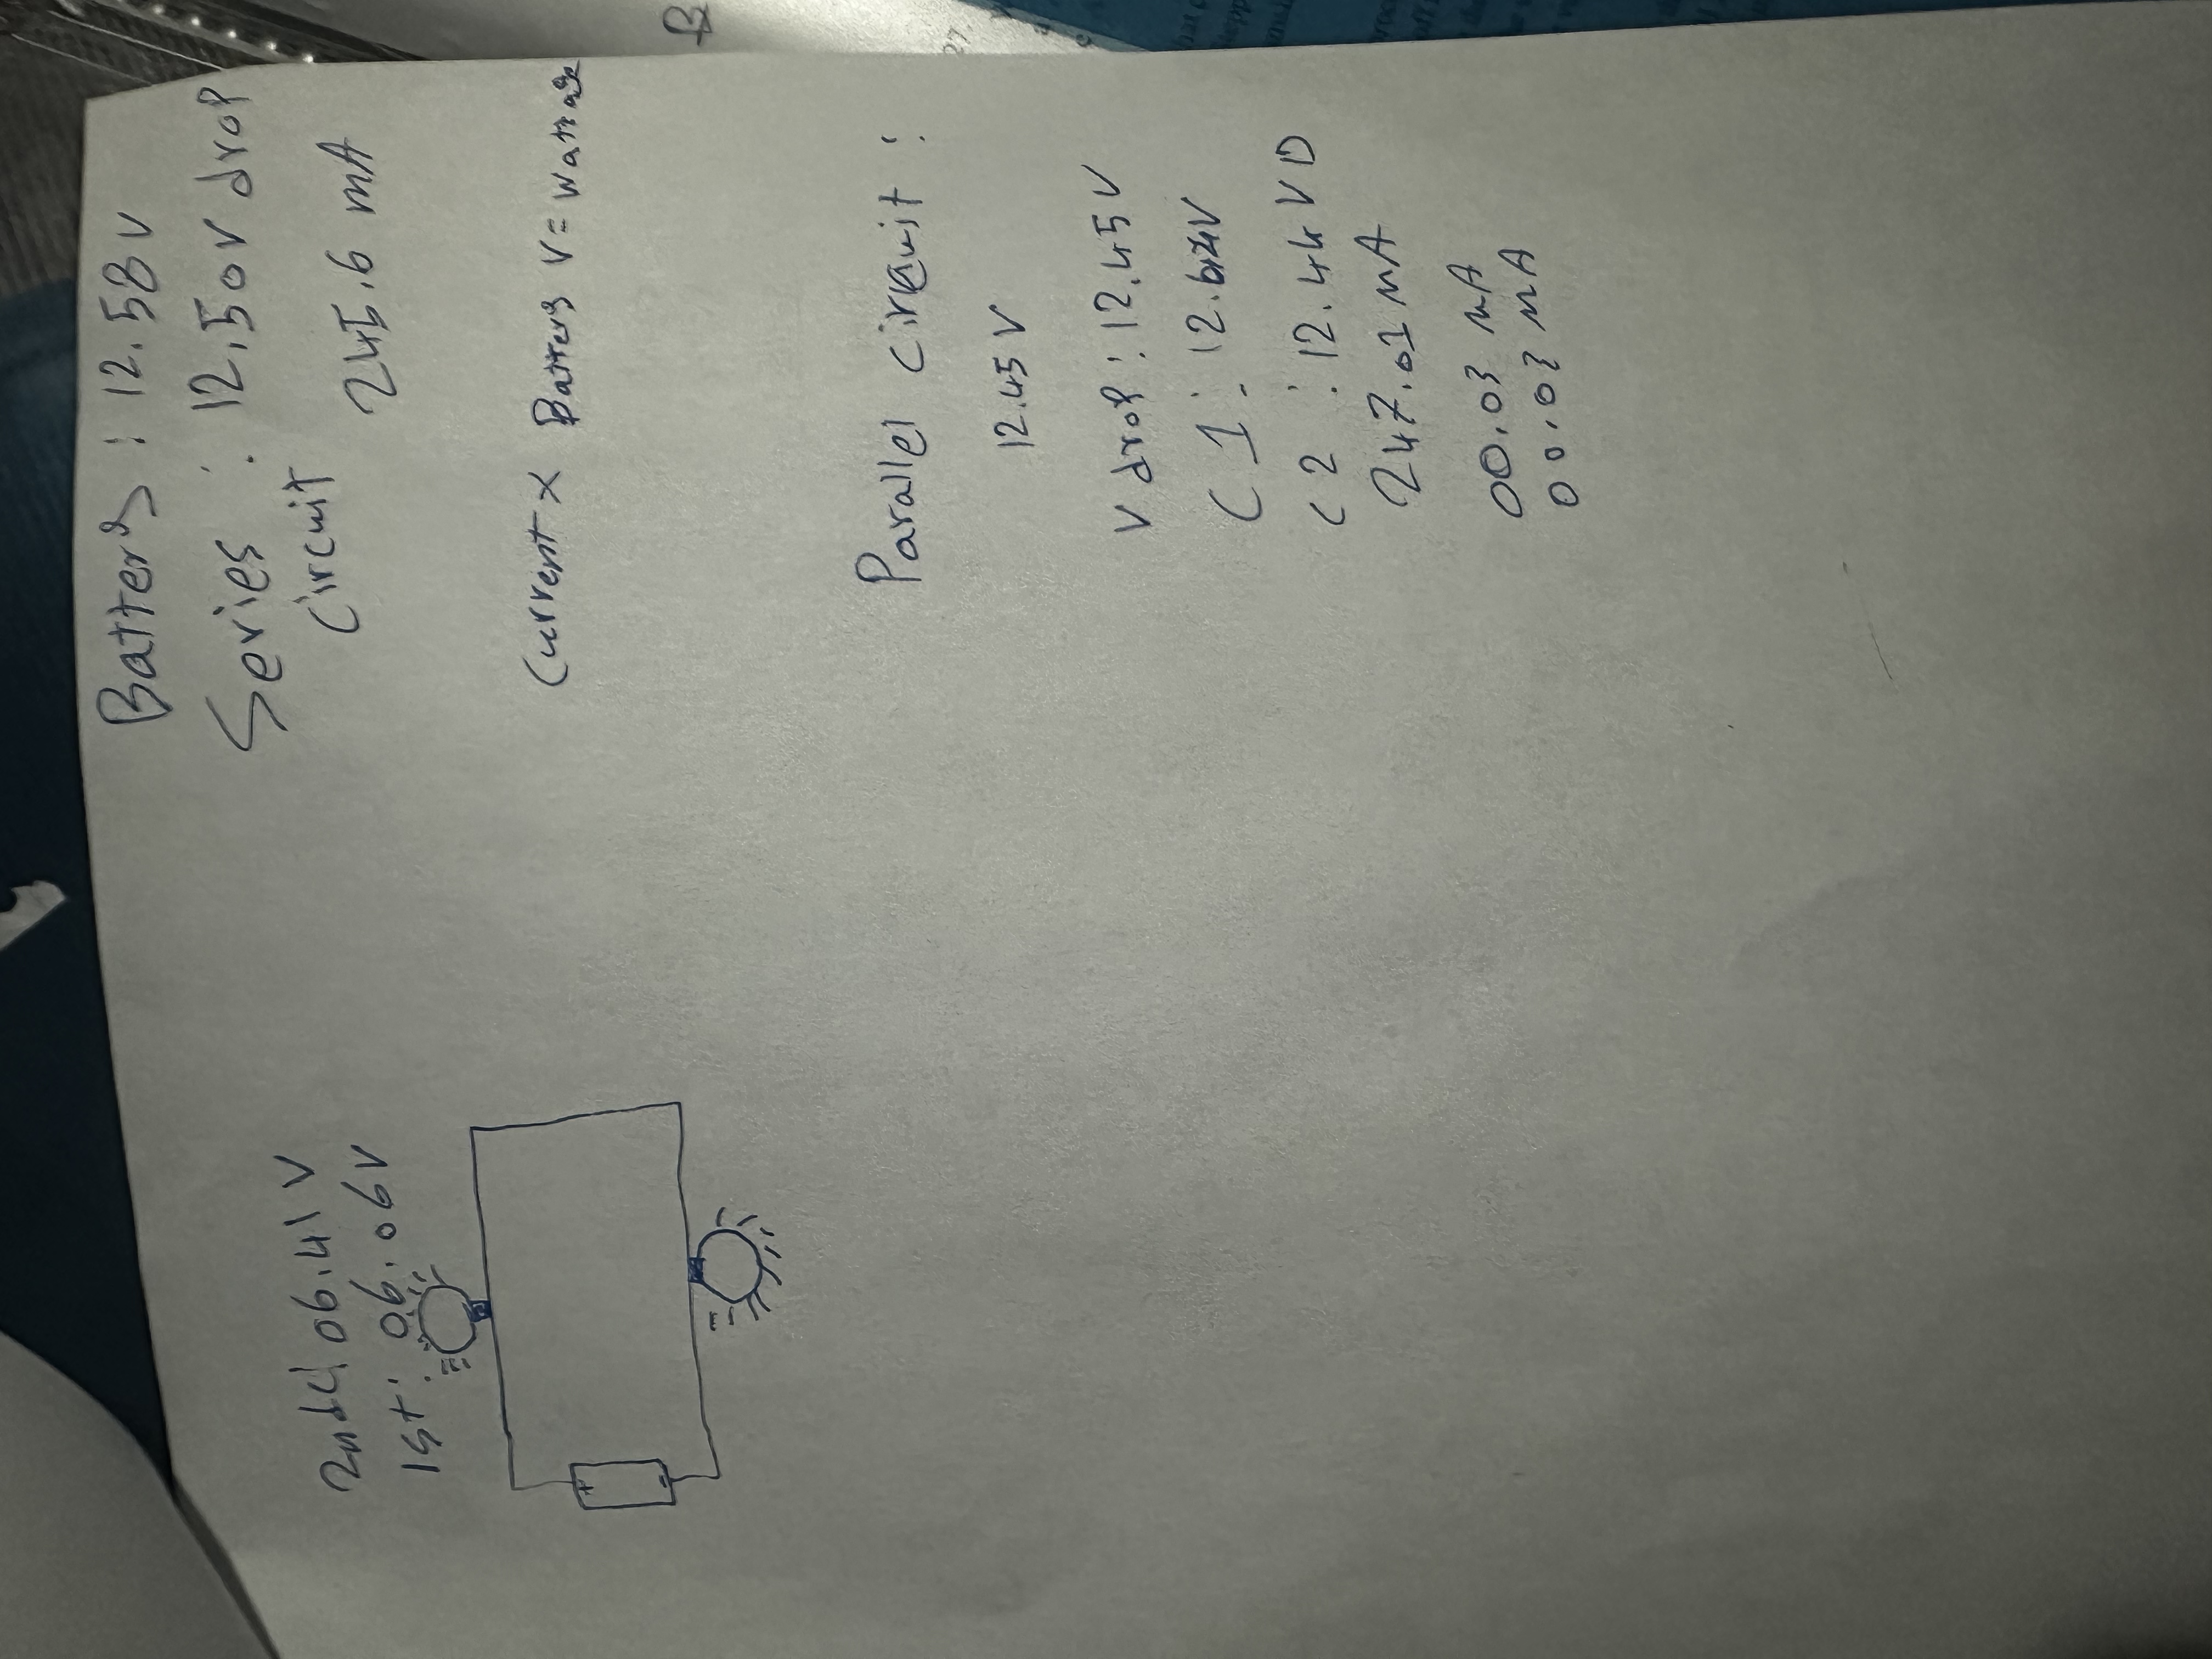 Battery : 12.58 V
Series : 12.50 V drop
Circuit 245.6 mA
Current x Battery V = Wattage
Parallel Circuit :
12.45 V
V drop : 12.45 V
C 1 :
C 2 : 12.44 V D
247.01 mA
00.03 mA
00.03 mA
06.41 V
1st : 06.06 V
+
-
B